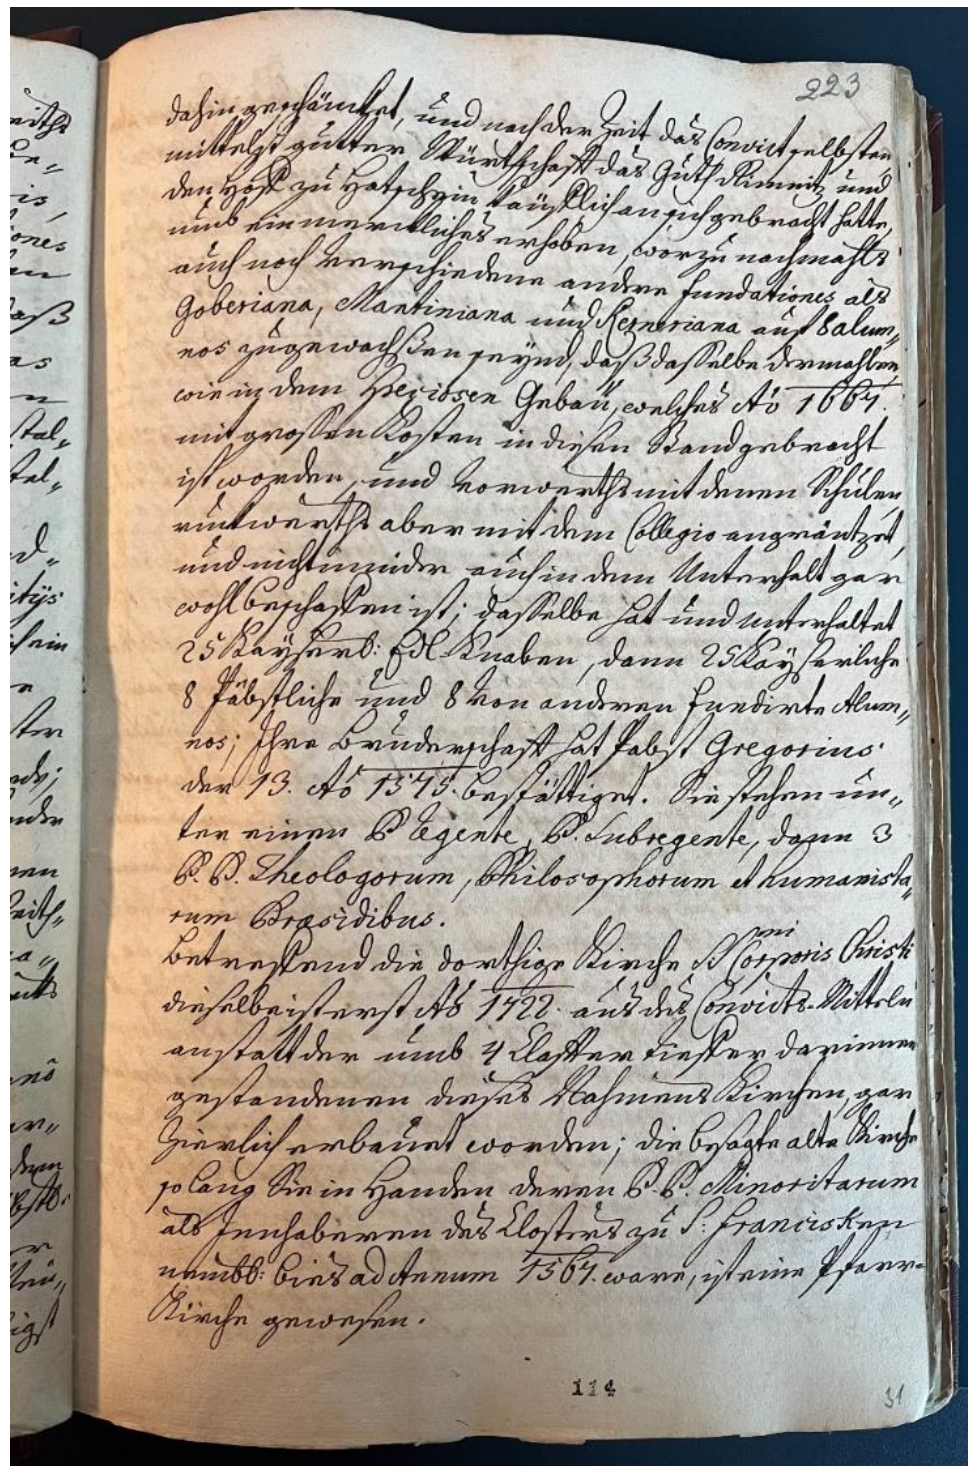 223
dahin geschäncket, und nach der Zeit das Convict selbsten
mittelst gutter Würthschafft das Guth Rimnitz und
den Hoff zu Hatschein käufflich an sich gebracht hatte,
umb ein merckliches erhoben, worzu nachmahls
auch noch verschiedene andere fundationes als
Goberiana, Mantiniana und Kerneriana auf 8 alum„
nos zugewachßen seynd, daß dasselbe dermahlen
wie in dem Gebäu, welches Aō 1667.
mit grossen Kosten in diesen Stand gebracht
ist worden, und vorwerths mit denen Schulen
ruckwerths aber mit dem Collegio angräntzet,
und nicht minder auch in dem Unterhalt gar
wohl beschaffen ist; dasselbe hat und unterhaltet
25 Kayserl: Edl Knaben, dann 25 Kayserliche
8 Päbstliche und 8 von anderen fundirte Alum„
nos; Ihre Bruderschafft hat Pabst Gregorius
der 13. Aō 1575. bestättiget. Sie stehen un„
ter einen P. Regente, P. Subregente, dann 3
P. P. Theologorum, Philosophorum et humanista„
rum Præsidibus.
Betreffend die dorthige Kirche SSmi Corporis Christi
dieselbe ist erst Aō 1722. aus des Convicts-Mitteln
anstatt der umb 4 Claffter tieffer darinnen
gestandenen dieses Nahmens Kirchen, gar
zierlich erbauet worden; die besagte alte Kirche
so lang Sie in Handen deren P. P. Minoritarum
als Jnnhaberen des Closters zu S: Francisken
nembl: bies ad Annum 1567. ware, ist eine Pfarr-
Kirche gewesen.
114
31